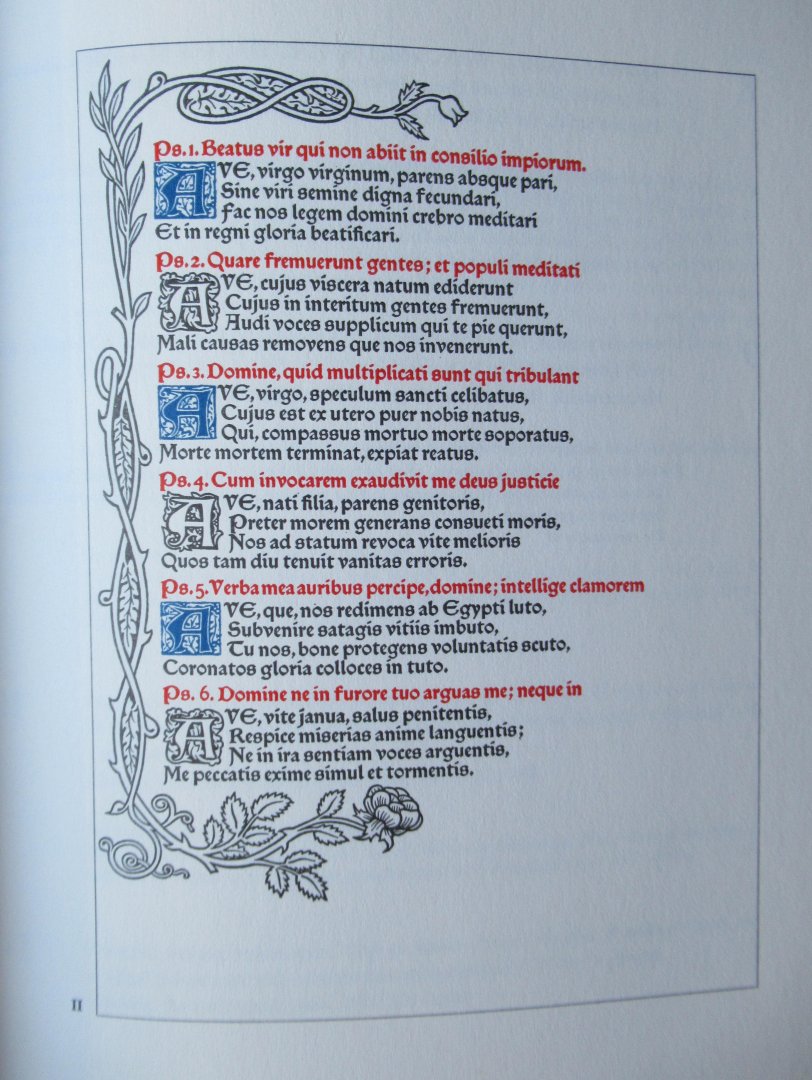 Ps. 1. Beatus vir qui non abiit in consilio impiorum.
AVE, virgo virginum, parens absque pari,
Sine viri semine digna fecundari,
Fac nos legem domini crebro meditari
Et in regni gloria beatificari.
Ps. 2. Quare fremuerunt gentes; et populi meditati
AVE, cujus viscera natum ediderunt
Cujus in interitum gentes fremuerunt,
Audi voces supplicum qui te pie querunt,
Mali causas removens que nos invenerunt.
Ps. 3. Domine, quid multiplicati sunt qui tribulant
AVE, virgo, speculum sancti celibatus,
Cujus est ex utero puer nobis natus,
Qui, compassus mortuo morte soporatus,
Morte mortem terminat, expiat reatus.
Ps. 4. Cum invocarem exaudivit me deus justicie
AVE, nati filia, parens genitoris,
Preter morem generans consueti moris,
Nos ad statum revoca vite melioris
Quos tam diu tenuit vanitas erroris.
Ps. 5. Verba mea auribus percipe, domine; intellige clamorem
AVE, que, nos redimens ab Egypti luto,
Subvenire satagis vitiis imbuto,
Tu nos, bone protegens voluntatis scuto,
Coronatos gloria colloces in tuto.
Ps. 6. Domine ne in furore tuo arguas me; neque in
AVE, vite janua, salus penitentis,
Respice miserias anime languentis;
Ne in ira sentiam voces arguentis,
Me peccatis exime simul et tormentis.
II